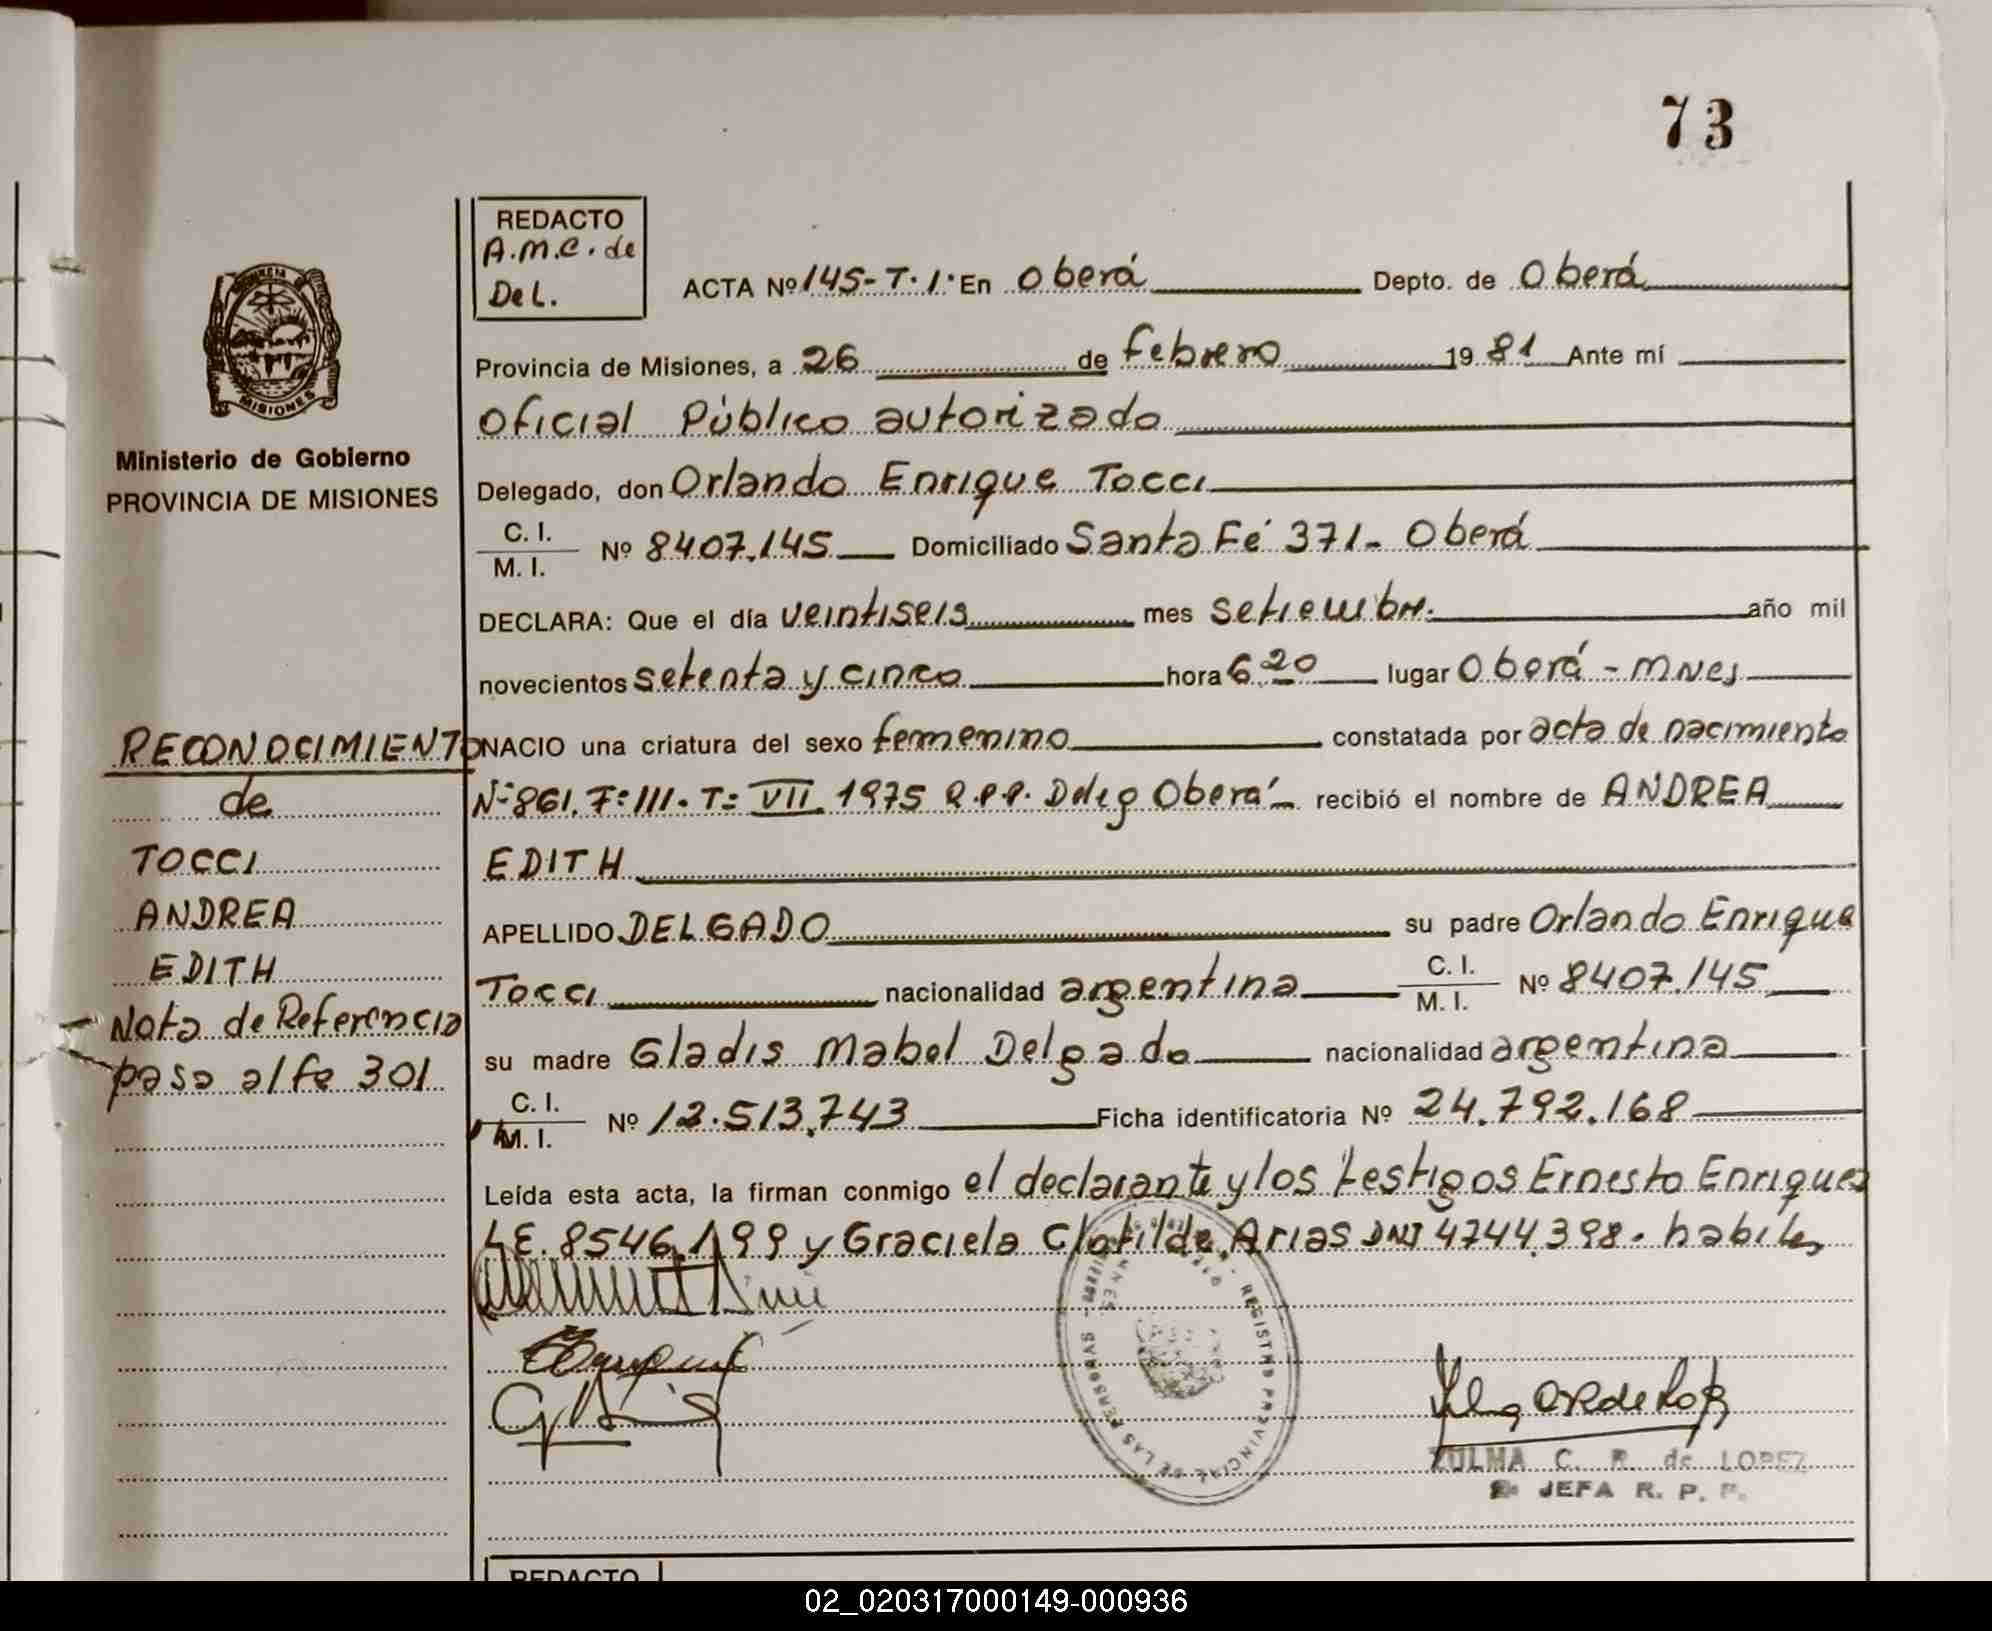 73
REDACTO
A.M.C. de
Del.
ACTA Nº 145-T.1. En Oberá Depto. de Oberá
Provincia de Misiones, a 26 de febrero 1981 Ante mí
Oficial Público autorizado
Delegado, don Orlando Enrique Tocci
C. I.
M. I.
Nº 8407.145 Domiciliado Santa Fé 371- Oberá
DECLARA: Que el día veintiseis mes setiembre año mil
novecientos setenta y cinco hora 6 20 lugar Oberá - Mnes
NACIO una criatura del sexo femenino constatada por acta de nacimiento
Nº 861. Fº 111. Tº VII 1975 R.P.P. Deleg Oberá recibió el nombre de ANDREA
EDITH
APELLIDO DELGADO su padre Orlando Enrique
Tocci nacionalidad argentina C. I.
M. I. Nº 8407.145
su madre Gladis Mabel Delgado nacionalidad argentina
C. I.
M. I.
Nº 12.513.743 Ficha identificatoria Nº 24.792.168
Leída esta acta, la firman conmigo el declarante y los testigos Ernesto Enriquez
LE. 8546.199 y Graciela Clotilde Arias DNI 4744.398. habiles
ZULMA C. R. de LOPEZ
JEFA R. P. P.
REDACTO
PROVINCIA
MISIONES
Ministerio de Gobierno
PROVINCIA DE MISIONES
RECONOCIMIENTO
de
TOCCI
ANDREA
EDITH
Nota de Referencia
pasa al fº 301
REGISTRO PROVINCIAL DE LAS PERSONAS
02_020317000149-000936